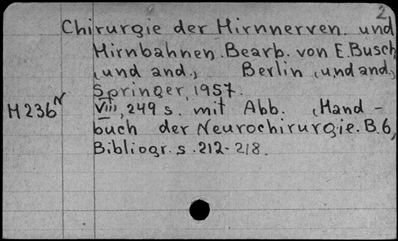 2
Chirurgie der Hirnnerven und
Hirnbahnen. Bearb. von E. Busch
(und and.) Berlin (und and.)
Springer, 1957.
H236N VIII, 249 s. mit Abb. (Hand-
buch der Neurochirurgie. B.6)
Bibliogr. s. 212-218.